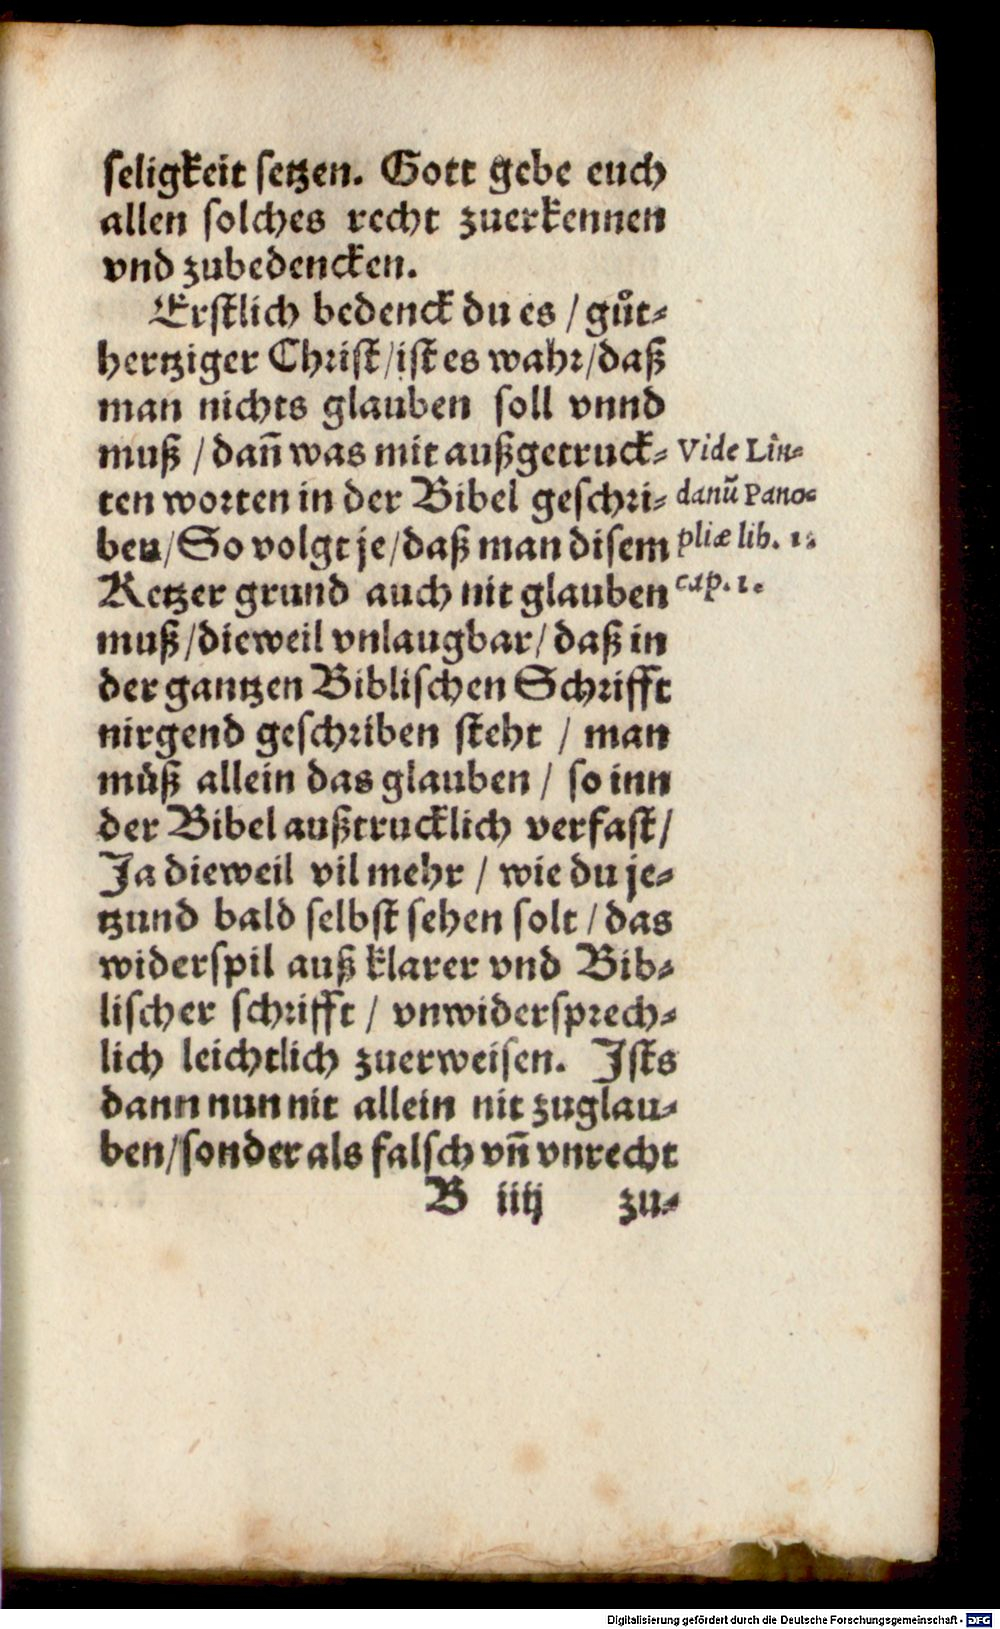 seligkeit setzen. Gott gebe euch
allen solches recht zuerkennen
vnd zubedencken.
Erstlich bedenck du es / guͦt-
hertziger Christ / ist es wahr / daß
man nichts glauben soll vnnd
muß / dañ was mit außgetruck-
ten worten in der Bibel geschri-
ben / So volgt je / daß man disem
Ketzer grund auch nit glauben
muß / dieweil vnlaugbar / daß in
der gantzen Biblischen Schrifft
nirgend geschriben steht / man
muͤß allein das glauben / so inn
der Bibel außtrucklich verfast /
Ja dieweil vil mehr / wie du je-
tzund bald selbst sehen solt / das
widerspil auß klarer vnd Bib-
lischer schrifft / vnwidersprech-
lich leichtlich zuerweisen. Ists
dann nun nit allein nit zuglau-
ben / sonder als falsch vñ vnrecht
B iiij zu-
Vide Lin-
danũ Pano-
pliæ lib. 1.
cap. 1.
Digitalisierung gefördert durch die Deutsche Forschungsgemeinschaft - DFG